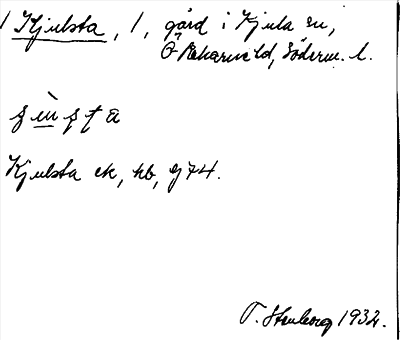 Kjulsta, 1, gård i Kjula sn,
Ö Rekarne hd, Söderm. l.
Kjulsta ek, hb, gj 74.
T. Stenborg 1932.